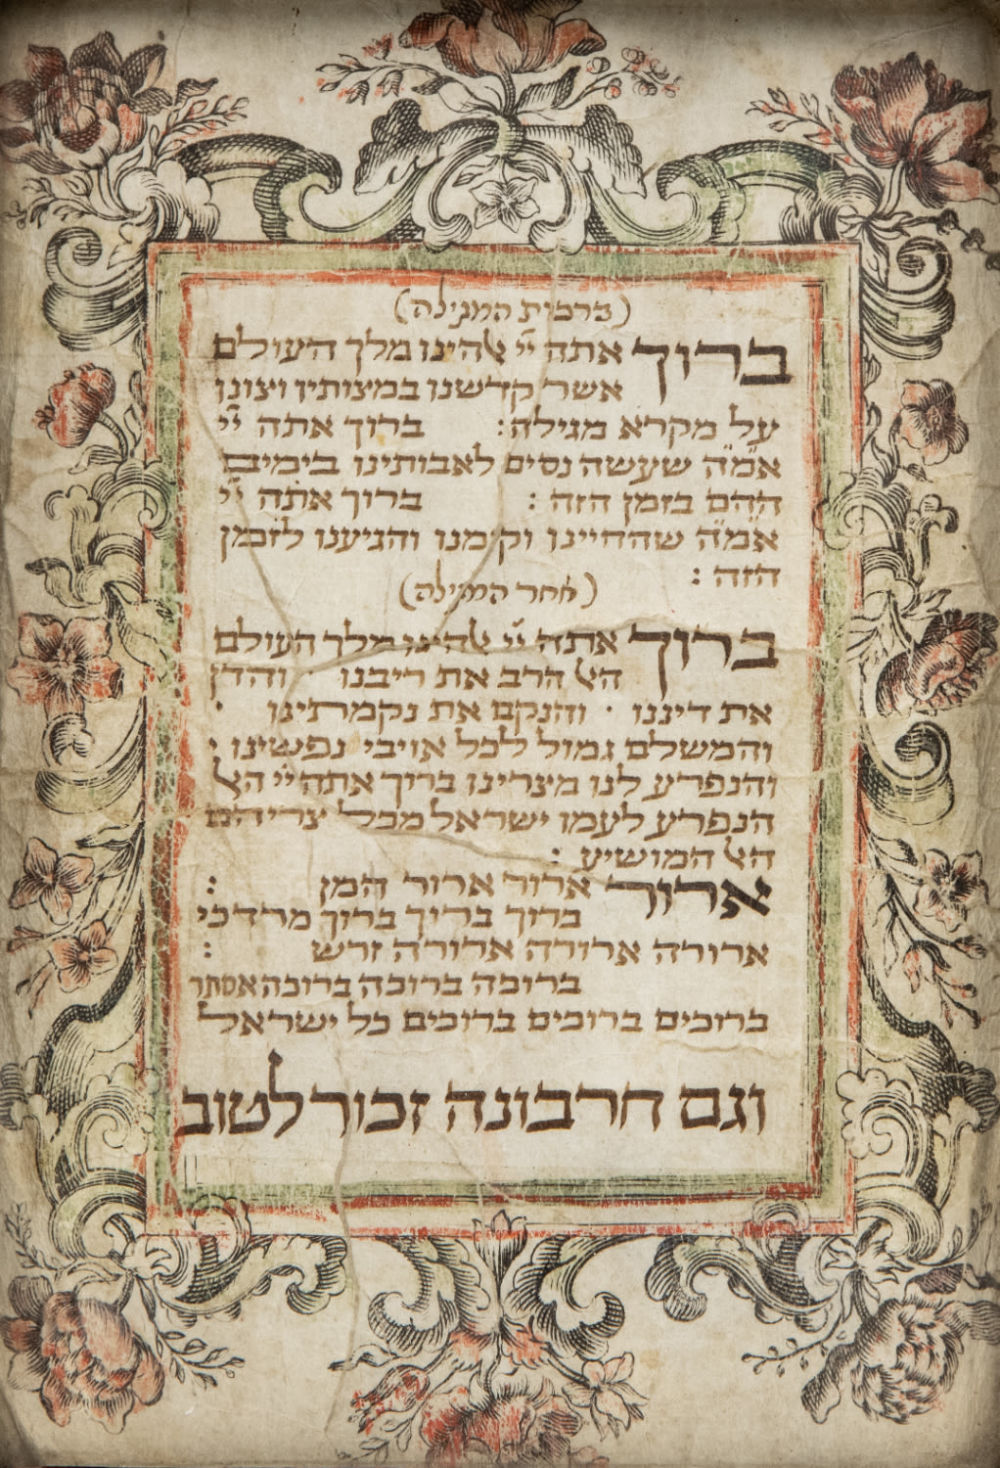 (ברכות המגילה)
ברוך אתה יי אלהינו מלך העולם
אשר קדשנו במצותיו וצונו
על מקרא מגילה: ברוך אתה יי
אמ״ה שעשה נסים לאבותינו בימים
ההם בזמן הזה: ברוך אתה יי
אמ״ה שהחיינו וקימנו והגיענו לזמן
הזה:
(אחר המגילה)
ברוך אתה יי אלהינו מלך העולם
האל הרב את ריבנו · והדן
את דיננו · והנקם את נקמתינו ·
והמשלם גמול לכל אויבי נפשינו ·
והנפרע לנו מצרינו ברוך אתה יי האל
הנפרע לעמו ישראל מכל צריהם
האל המושיע:
ארור ארור ארור המן :
ברוך ברוך ברוך מרדכי
ארורה ארורה ארורה זרש :
ברוכה ברוכה ברוכה אסתר
ברוכים ברוכים ברוכים כל ישראל
וגם חרבונה זכור לטוב